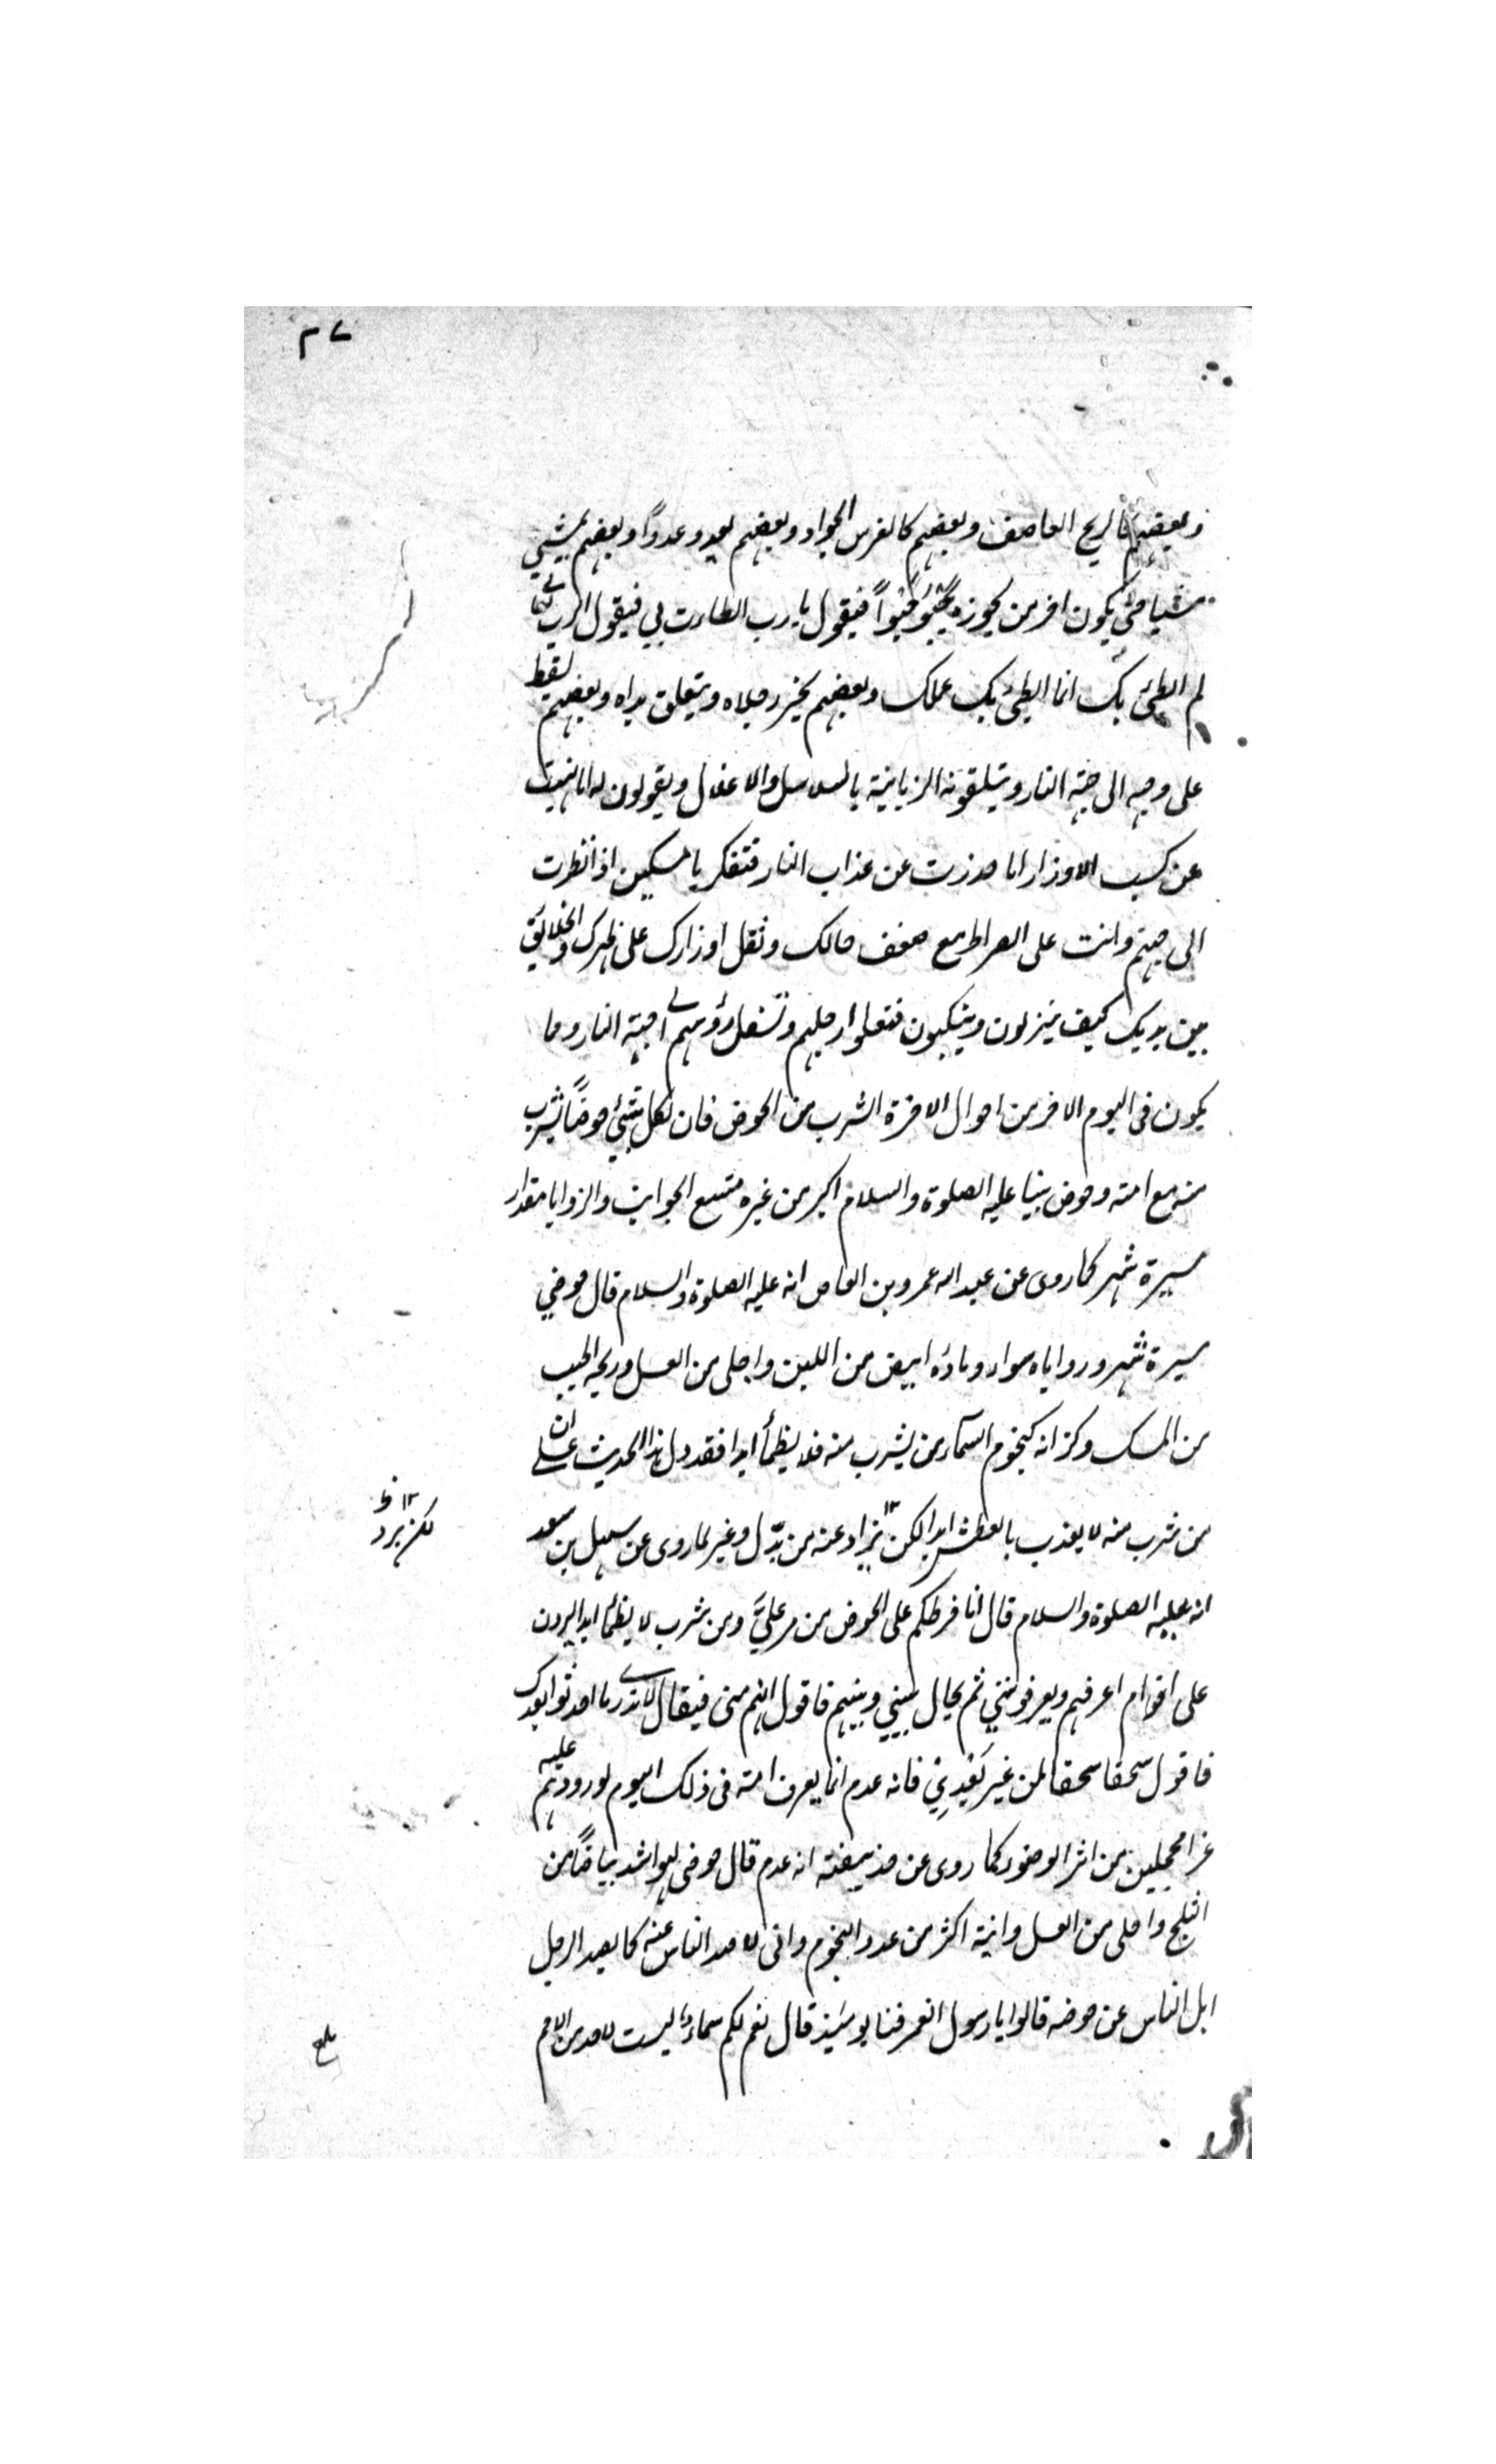 ٢٧
وبعضهم كالريح العاصف وبعضهم كالفرس الجواد وبعضهم يعدو عدوًا وبعضهم يمشي
مشيا حتى يكون اخر من يجوزه يحبُو حَبْواً فيقول يا رب ابطات بي فيقول الرب تعا
لم ابطئ بك انما ابطئ بك عملك وبعضهم يخرّ رجلاه ويتعلق يداه وبعضهم يسقط
على وجهه الى جهة النار ويتلقونه الزبانية بالسلاسل والاغلال ويقولون له اما نهيت
عن كسب الاوزار اما حذرت عن عذاب النار فتفكر يا مسكين اذا نظرت
الى جهنم وانت على الصراط مع ضعف حالك وثقل اوزارك على ظهرك والخلائق
بين يديك كيف ينزلون وينكبون فتعلوا ارجلهم وتسفل رؤسهم الى جهة النار وما
يكون فى اليوم الاخر من احوال الاخرة الشرب من الحوض فان لكل نبيّ حوضًا يشرب
منه مع امته وحوض نبينا عليه الصلوة والسلام اكبر من غيره متسع الجوانب والزوايا مقدار
مسيرة شهر كما روى عن عبد الله عمرو بن العاص انه عليه الصلوة والسلام قال حوضي
مسيرة شهر وزواياه سواء وماؤه ابيض من اللبن واحلى من العسل وريحه اطيب
من المسك وكزانه كنجوم السماء من يشرب منه فلا يظمأ ابدا فقد دل هذا الحديث على ان
من شرب منه لا يعذب بالعطش ابدا لكن يزاد عنه من بدّل وغير لما روى عن سهيل بن سعد
لكن يرد
انه عليه الصلوة والسلام قال انا فرطكم على الحوض من مر عليَّ ومن شرب لا يظمأ ابدا ليردن
على اقوام اعرفهم ويعرفونني ثم يحال بيني وبينهم فاقول انهم منى فيقال لا تدرى ما احدثوا بعدك
فاقول سحقا سحقا لمن غير بَعْدِي فانه عدم انما يعرف امته فى ذلك اليوم لورودهم عليه
غرا محجلين من اثر الوضوء كما روى عن حذيفة انه عدم قال حوضى لهوا شد بياضًا من
الثلج واحلى من العسل وانية اكثر من عدد النجوم وانى لاصد الناس عنه كما يصد الرجل
ابل الناس عن حوضه قالوا يا رسول اتعرفنا يومئذ قال نعم لكم سماء ليست لاحد من الامم
بلغ